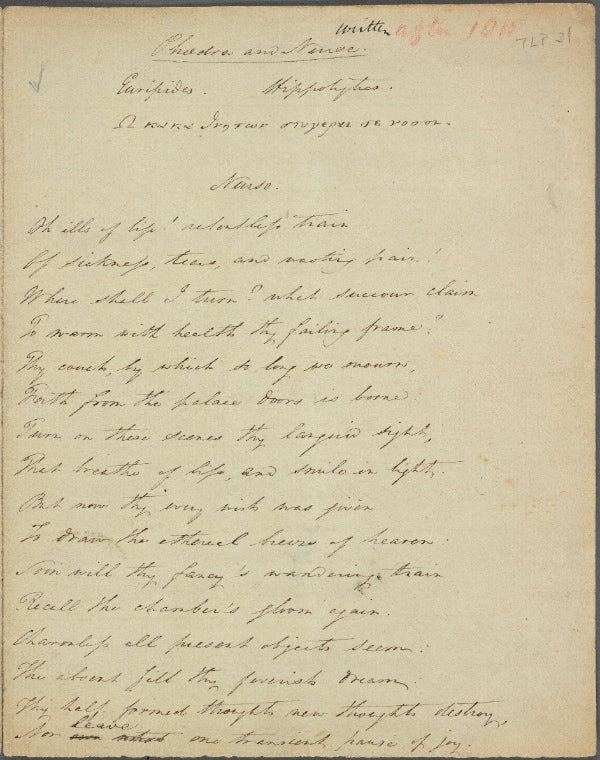 written after 18
TLP 31
Phædra and Nurse.
Euripides. Hippolytus.
Ω κακα θνητων στυγεραι τε νοσοι.
Nurse.
Oh ills of life! relentless train
Of sickness, tears, and wasting pain!
Where shall I turn? what succour claim
To warm with health thy failing frame?
Thy couch, by which so long we mourn,
Forth from the palace doors is borne:
Turn on these scenes thy languid sight,
That breathe of life, and smile in light.
But now thy every wish was given
To draw the ethereal breeze of heaven:
Soon will thy fancy's wandering train
Recall the chamber's gloom again.
Charmless all present objects seem:
The absent fill thy feverish dream:
Thy half formed thoughts new thoughts destroy,
leave
Nor one transient pause of joy.